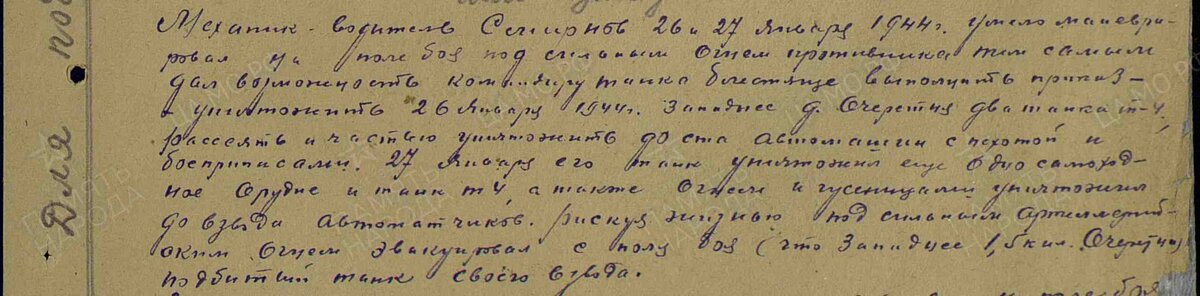 Механик-водитель Смирнов 26 и 27 января 1944 г. умело маневри-
ровал на поле боя под сильным огнем противника тем самым
дал возможность командиру танка блестяще выполнить приказ-
- уничтожить 26 января 1944 г. западнее д. Очеретня два танка т-4,
рассеять и частью уничтожить до ста автомашин с пехотой и
боеприпасами. 27 января его танк уничтожил еще одно самоход-
ное орудие и танк т4, а также огнем и гусеницами уничтожил
до взвода автоматчиков. Рискуя жизнью под сильным артиллерий-
ским огнем эвакуировал с поля боя (что западнее 1,5 кил. Очеретня)
подбитый танк своего взвода.
Для